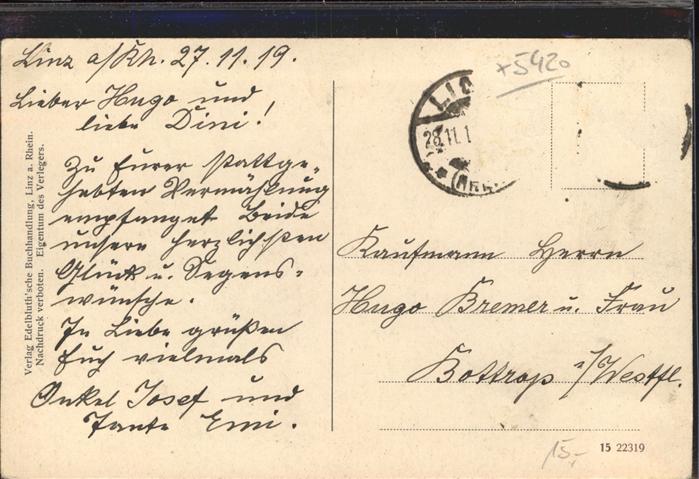 Linz a/Rh. 27.11.19.
Lieber Hugo und
liebe Dini!
Zu Eurer stattge-
habten Vermählung
empfanget beide
unsere herzlichsten
Glück u. Segens-
wünsche.
In Liebe grüßen
Euch vielmals
Onkel Josef und
Tante Emi.
Verlag Edelbluth'sche Buchhandlung, Linz a. Rhein.
Nachdruck verboten. Eigentum des Verlegers.
+5420
28.11.1
Kaufmann Herrn
Hugo Bremer u. Frau
Bottrop i/Westfl.
15,-
15 22319